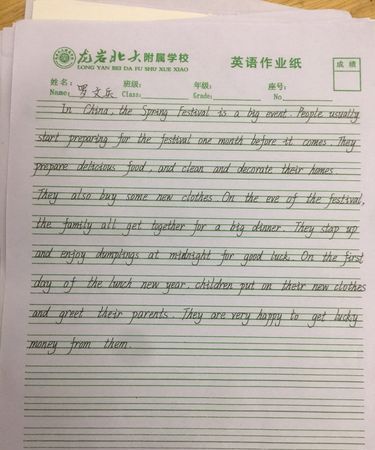 龙岩北大附属学校 英语作业纸 成绩
LONG YAN BEI DA FU SHU XUE XIAO
姓名: 班级: 年级: 座号:
Name: 罗文乐 Class: Grade: No
In China, the Spring Festival is a big event. People usually
start preparing for the festival one month before it comes. They
prepare delicious food, and clean and decorate their homes.
They also buy some new clothes. On the eve of the festival,
the family all get together for a big dinner. They stap up
and enjoy dumplings at midnight for good luck. On the first
day of the lunch new year, children put on their new clothes
and greet their parents. They are very happy to get lucky
money from them.